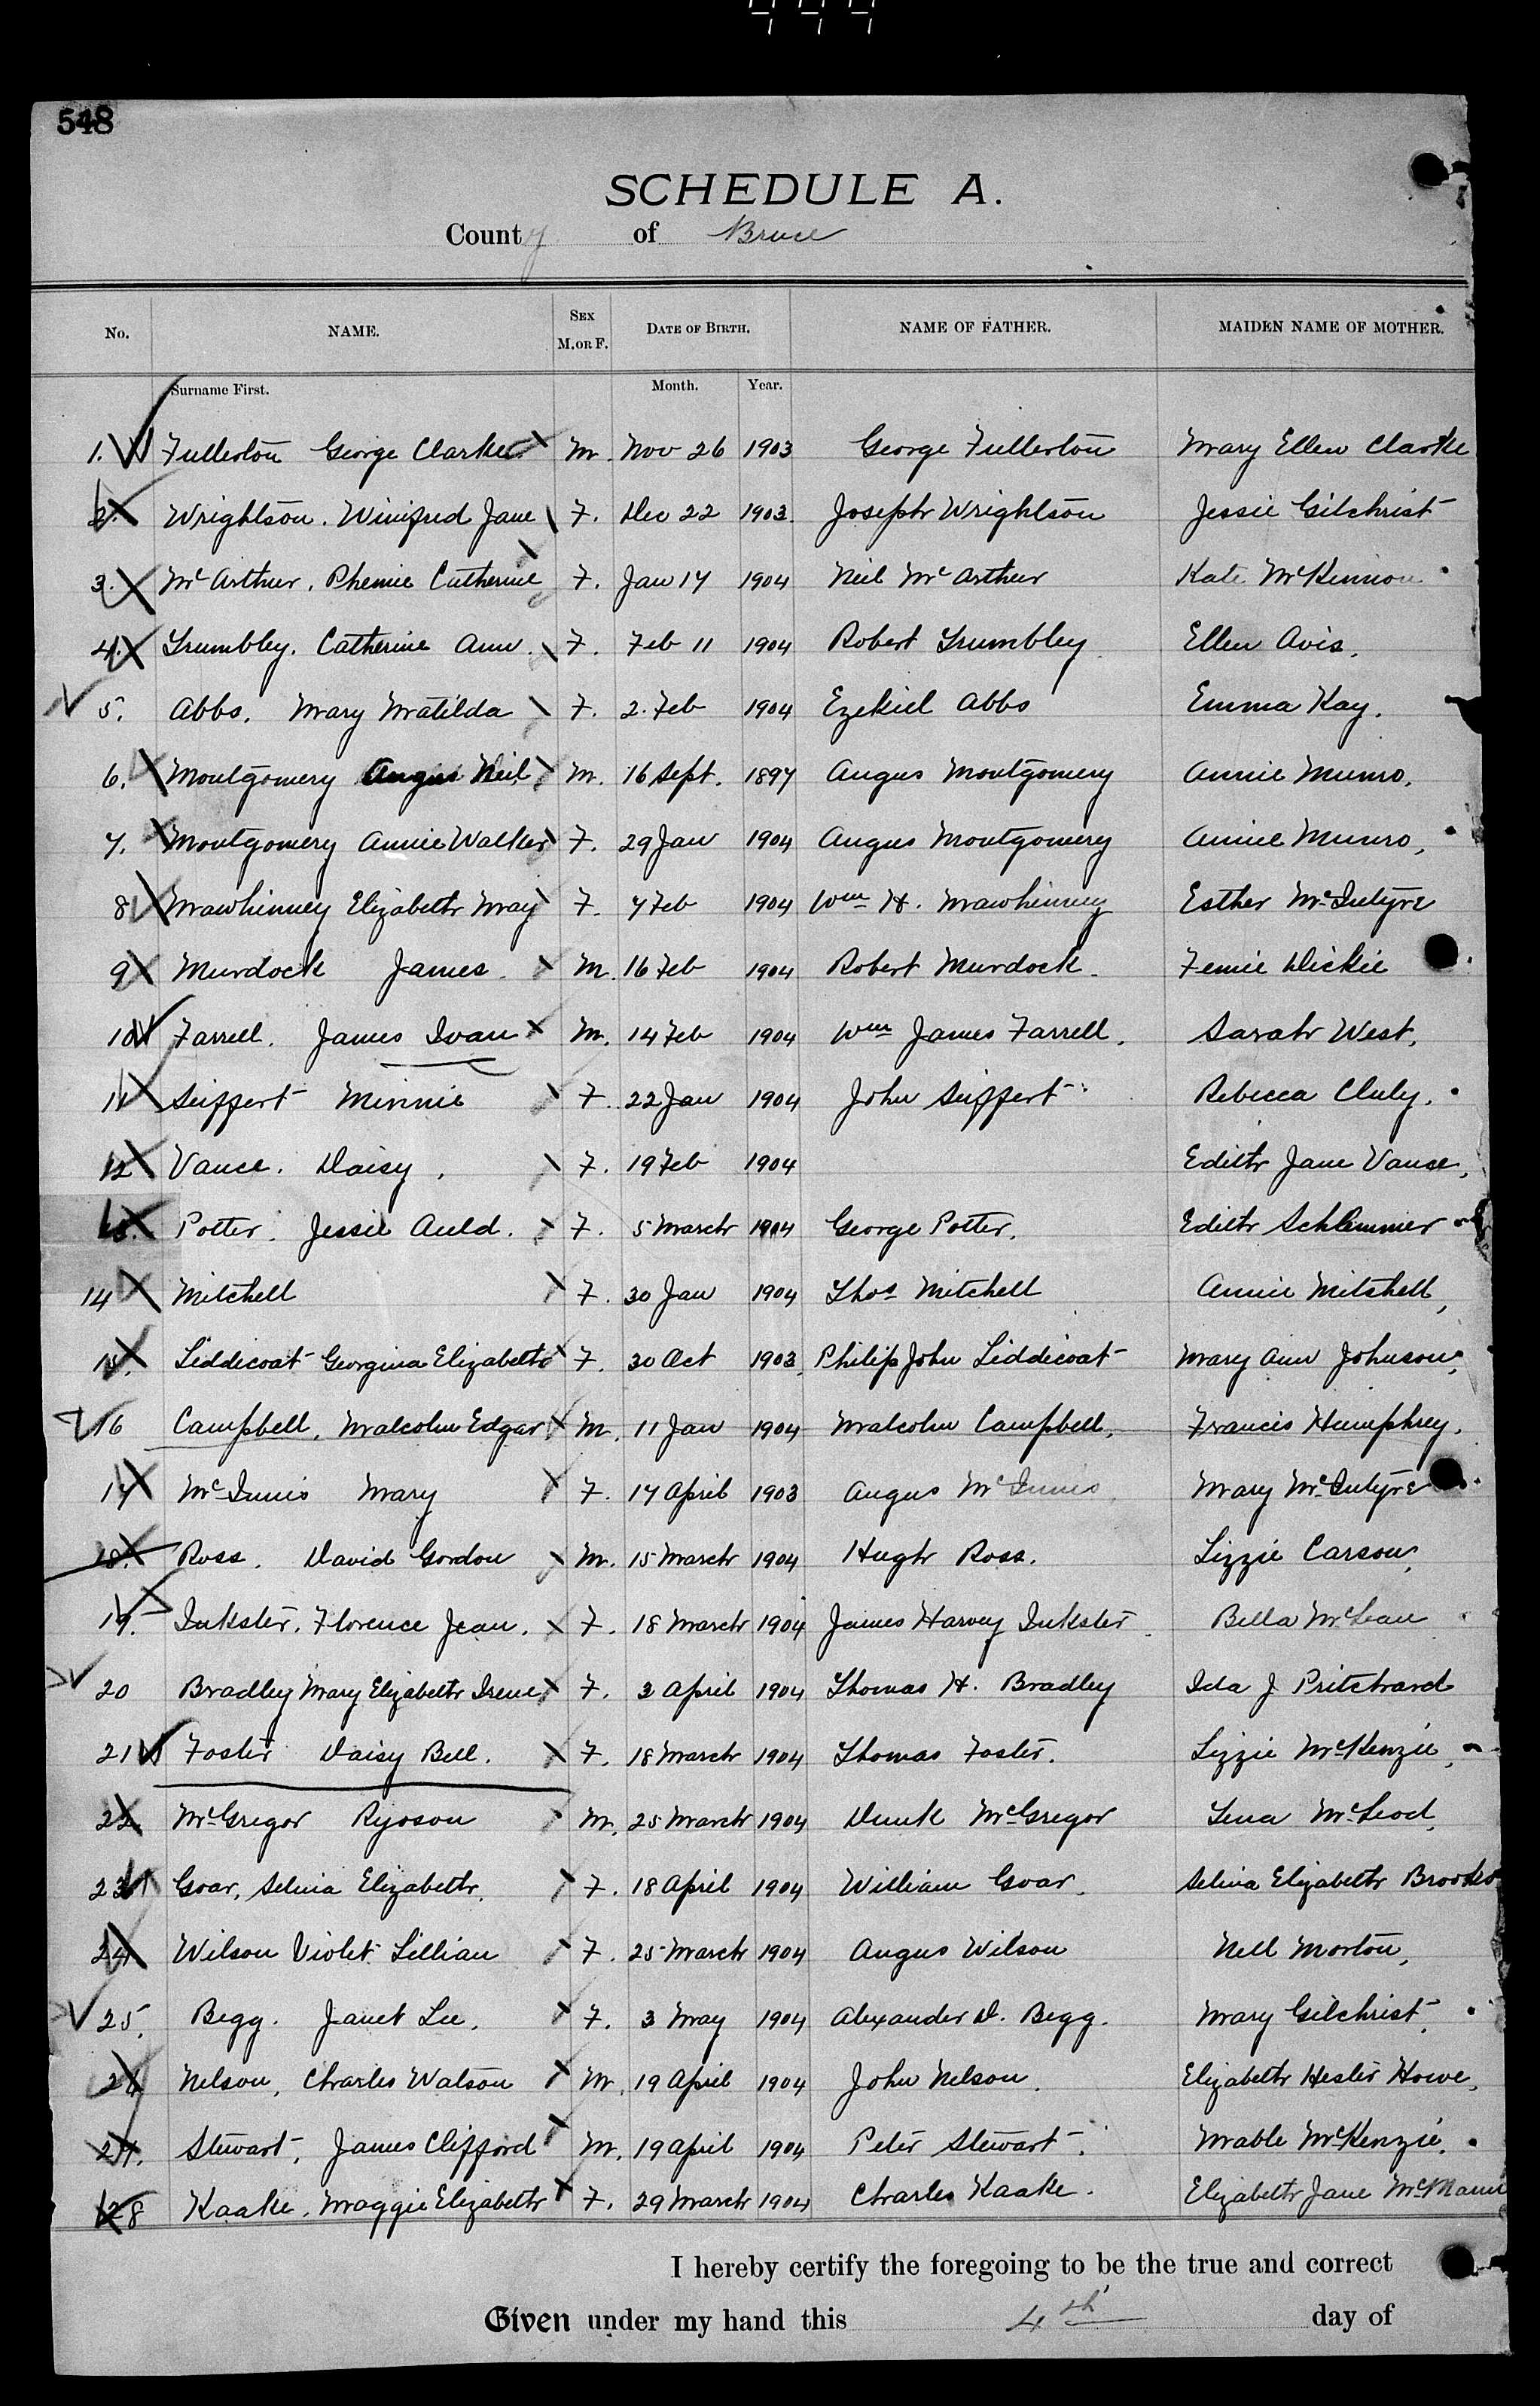 548
SCHEDULE A.
County of Bruce
No. NAME. SEX M. OR F. DATE OF BIRTH. NAME OF FATHER. MAIDEN NAME OF MOTHER.
Surname First. Month. Year.
1. Fullerton George Clarke M. Nov 26 1903 George Fullerton Mary Ellen Clarke
2. Wrightson. Winifred Jane F. Dec 22 1903. Joseph Wrightson Jessie Gilchrist
3. McArthur, Phemie Catherine F. Jan 17 1904 Neil McArthur Kate McKinnon
4. Trumbley. Catherine Ann. F. Feb 11 1904 Robert Trumbley Ellen Avis.
5. Abbs, Mary Matilda F. 2. Feb 1904 Ezekiel Abbs Emma Kay.
6. Montgomery Angus Neil M. 16 Sept. 1897 Angus Montgomery Annie Munro,
7. Montgomery Annie Walker F. 29 Jan 1904 Angus Montgomery Annie Munro,
8 Mawhinney Elizabeth May F. 7 Feb 1904 Wm H. Mawhinney Esther McIntyre
9 Murdock James. M. 16 Feb 1904 Robert Murdock. Femie Dickie
10 Farrell. James Ivan M. 14 Feb 1904 Wm James Farrell. Sarah West.
11 Seippert Minnie F. 22 Jan 1904 John Seippert Rebecca Cluly.
12 Vance. Daisy. F. 19 Feb 1904 Edith Jane Vance,
13. Potter. Jessie Auld. F. 5 March 1904 George Potter. Edith Schlimmer
14 Mitchell F. 30 Jan 1904 Thos Mitchell Annie Mitchell,
15. Liddicoat Georgina Elizabeth F. 30 Oct 1903. Philip John Liddicoat Mary Ann Johnson,
16 Campbell, Malcolm Edgar M. 11 Jan 1904 Malcolm Campbell, Francis Humphrey.
17 McInnis Mary F. 17 April 1903 Angus McInnis Mary McIntyre
18. Ross. David Gordon M. 15 March 1904 Hugh Ross. Lizzie Carson,
19. Inkster, Florence Jean. F. 18 March 1904 James Harvey Inkster Bella McLean
20 Bradley Mary Elizabeth Irene F. 3 April 1904 Thomas H. Bradley Ida J Pritchard
21 Foster Daisy Bell. F. 18 March 1904 Thomas Foster. Lizzie McKenzie,
22. McGregor Ryoson M. 25 March 1904 Dunk McGregor Lena McLeod,
23 Goar, Selina Elizabeth. F. 18 April 1904 William Goar. Selina Elizabeth Brooks
24 Wilson Violet Lillian F. 25 March 1904 Angus Wilson Nell Morton,
25. Begg. Janet Lee. F. 3 May 1904 Alexander D. Begg. Mary Gilchrist,
26 Nelson, Charles Watson M. 19 April 1904 John Nelson. Elizabeth Hester Howe,
27. Stewart, James Clifford M. 19 April 1904 Peter Stewart. Mable McKenzie.
28 Kaake, Maggie Elizabeth F. 29 March 1904 Charles Kaake. Elizabeth Jane McMann
I hereby certify the foregoing to be the true and correct
Given under my hand this 4th day of